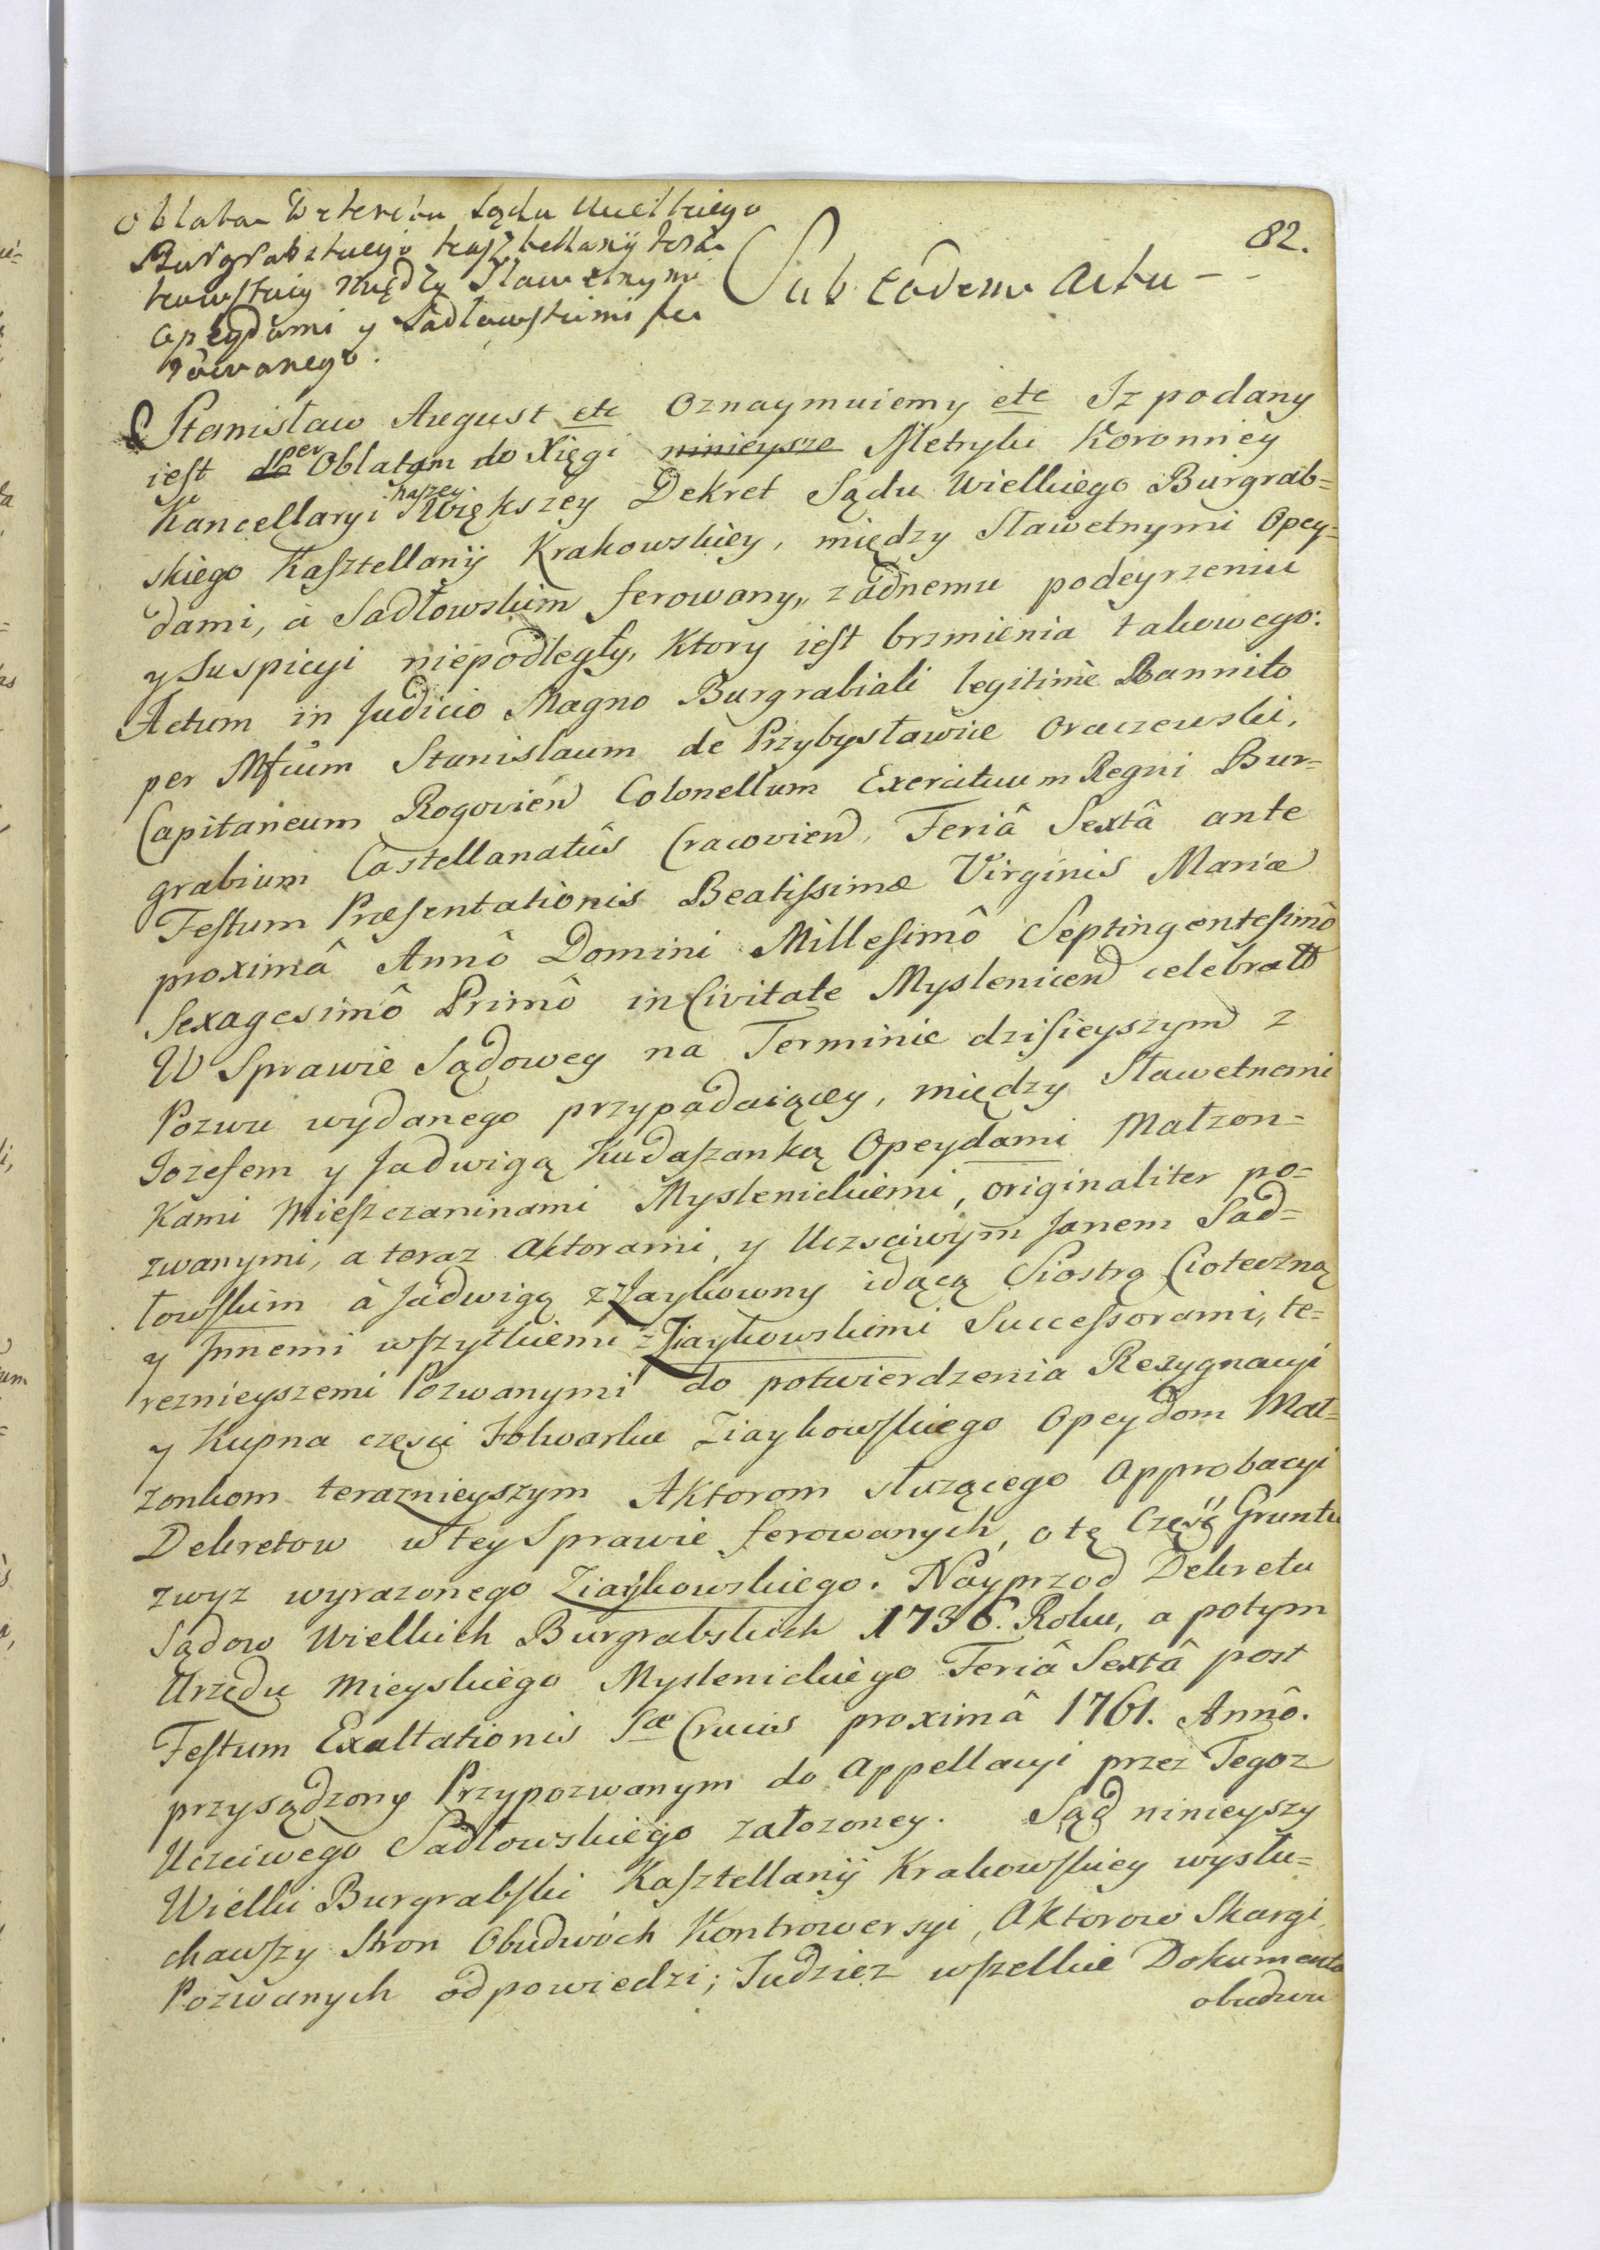 82.
Oblata Dekretu Sądu Wielkiego
Burgrabskiego Kasztellanij Kra=
kowskiey między Sławetnymi
Opeydami y Sadłowskimi fe
rowanego.
Sub Eodem Actu - -
Stanisław August etc Oznaymuiemy etc Iz podany
iest do per Oblatam do Xięgi ninieysze Metryki Koronney
Kancellaryi naszey Większey Dekret Sądu Wielkiego Burgrab=
skiego Kasztellanij Krakowskiey, między Sławetnymi Opey=
dami, à Sadłowskim ferowany, zadnemu podeyrzeniu
y Suspicyi niepodległy, Ktory iest brzmienia takowego:
Actum in Judicio Magno Burgrabiali legitimè Bannito
per Mfcum Stanislaum de Przybysławice Oraczewski,
Capitaneum Rogovień Colonellum Exercituum Regni Bur=
grabium Castellanatûs Cracovien, Feriâ Sextâ ante
Festum Præsentationis Beatissimæ Virginis Mariæ
proximâ Annô Domini Millesimô Septingentesimô
Sexagesimô Primô in Civitate Myslenicen celebrato
W Sprawie Sądowey na Terminie dzisieyszym z
Pozwu wydanego przypadaiącey, między Sławetnemi
Jozefem y Jadwigą Kudaszanką Opeydami Małzon=
Kami Mieszczaninami Myslenickiemi, originaliter po=
zwanymi, a teraz Aktorami, y Uczsciwym Janem Sad=
łowskim à Jadwigą z Ziaykowny idącą Siostrą Cioteczną
y Jnnemi wszytkiemi z Ziaykowskimi Successorami, te=
reznieyszemi Pozwanymi do potwierdzenia Rezygnacyi
y Kupna częsci Folwarku Ziaykowskiego Opeydom Mał=
zonkom teraznieyszym Aktorom słuzącego Approbacyi
Dekretow w tey Sprawie ferowanych, o tę Część Gruntu
zwyz wyrazonego Ziaykowskiego. Nayprzod Dekretu
Sądow Wielkich Burgrabskich 1736. Roku, a potym
Urzędu Mieyskiego Myslenickiego Feriâ Sextâ post
Festum Exaltationis Sæ Crucis proximâ 1761. Annô.
przysądzony Przypozwanym do Appellacyi przez Tegoz
Uczciwego Sadłowskiego załozoney. Sąd ninieyszy
Wielki Burgrabski Kasztellanij Krakowskiey wysłu=
chawszy Stron Obudwóch Kontrowersyi, Aktorow Skargi,
Pozwanych odpowiedzi; Tudziez wszelkie Dokumenta
obudwu